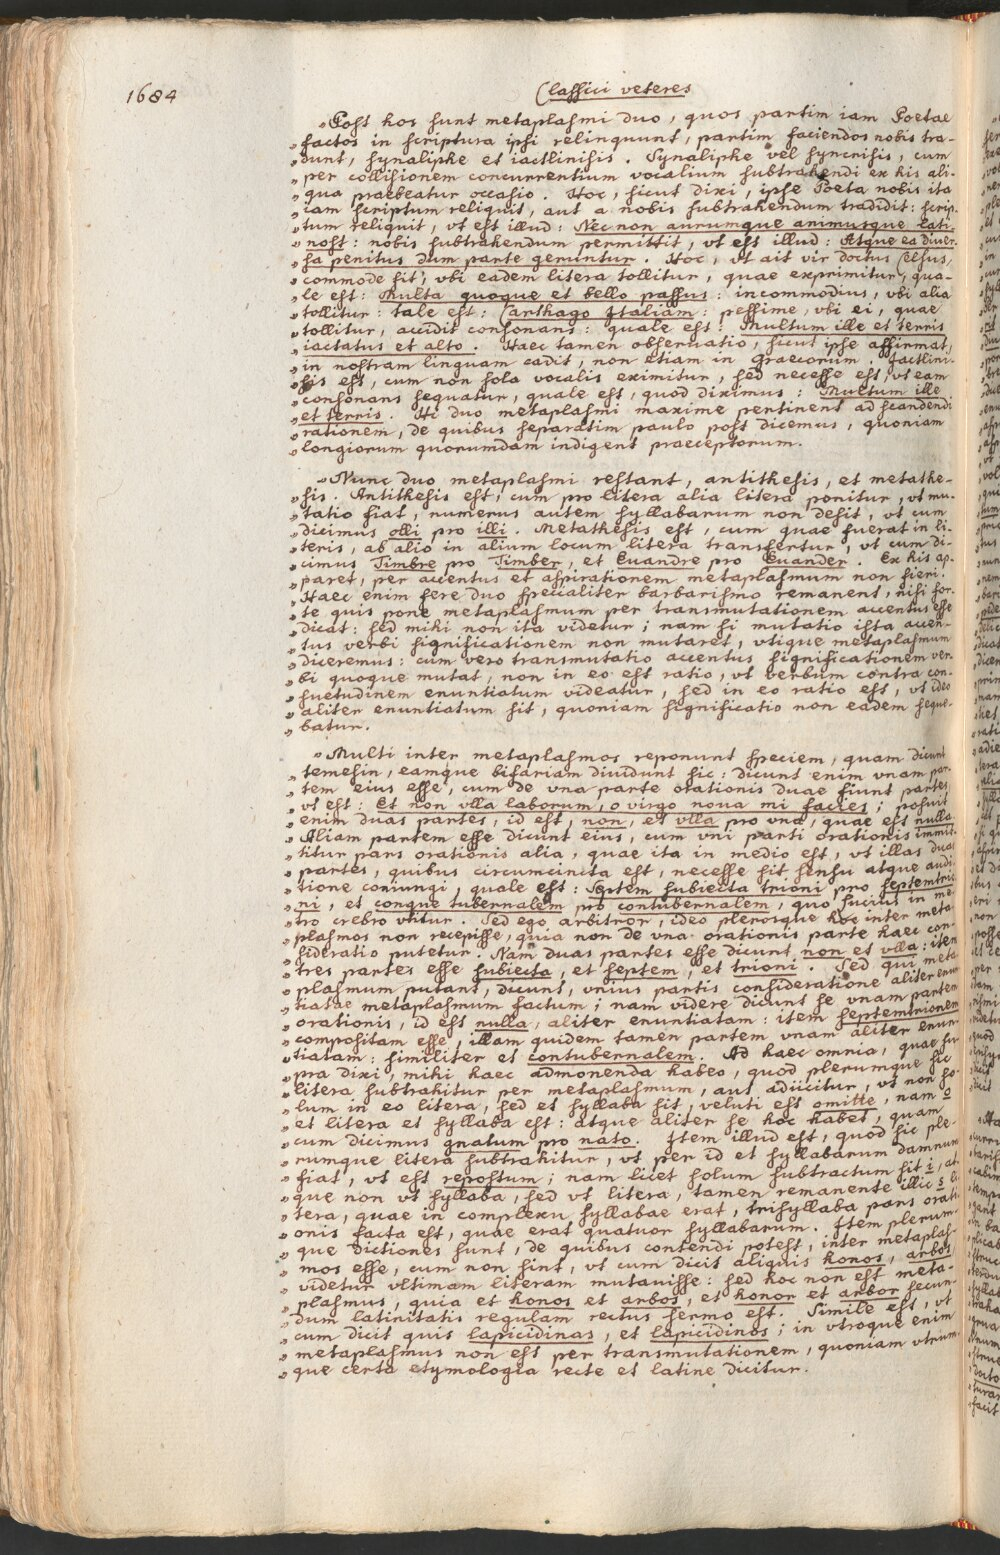 1684
Classici veteres
„Post hos sunt metaplasmi duo, quos partim iam Poetae
„factos in scriptura ipsi relinquunt, partim faciendos nobis tra-
„dunt, synaliphe et iactlinisis. Synaliphe vel syncrisis, cum
„per collisionem concurrentium vocalium subtrahendi ex his ali-
„qua praebeatur occasio. Hoc, sicut dixi, ipse Poeta nobis ita
„iam scriptum reliquit, aut a nobis subtrahendum tradidit: scrip-
„tum reliquit, vt est illud: Nec non aurumque animusque lati-
„nost: nobis subtrahendum permittit, vt est illud: Atque ea diver-
„sa penitus dum parte geruntur. Hoc, vt ait vir doctus Celsus,
„commode fit, vbi eadem litera tollitur, quae exprimitur, qua-
„le est: Multa quoque et bello passus: incommodius, vbi alia
„tollitur: tale est: Carthago Italiam: pessime, vbi ei, quae
„tollitur, accidit consonans: quale est: Multum ille et terris
„iactatus et alto. Haec tamen obseruatio, sicut ipse affirmat,
„in nostram linguam cadit, non etiam in Graecorum. Iactlini-
„sis est, cum non sola vocalis eximitur, sed necesse est, vt eam
„consonans sequatur, quale est, quod diximus: Multum ille
„et terris. Hi duo metaplasmi maxime pertinent ad scandendi
„rationem, de quibus separatim paulo post dicemus, quoniam
„longiorum quorumdam indigent praeceptorum.
„Nunc duo metaplasmi restant, antithesis, et metathe-
„sis. Antithesis est, cum pro litera alia litera ponitur, vt mu-
„tatio fiat, numerus autem syllabarum non desit, vt cum
„dicimus olli pro illi. Metathesis est, cum quae fuerat in li-
„teris, ab alio in alium locum litera transfertur, vt cum di-
„cimus Timbre pro Timber, et Euandre pro Euander. Ex his ap-
„paret, per accentus et aspirationem metaplasmum non fieri.
„Haec enim fere duo specialiter barbarismo remanent, nisi for-
„te quis pone metaplasmum per transmutationem accentus esse
„dicat: sed mihi non ita videtur; nam si mutatio ista accen-
„tus verbi significationem non mutaret, vtique metaplasmum
„diceremus: cum vero transmutatio accentus significationem ver-
„bi quoque mutat, non in eo est ratio, vt verbum contra con-
„suetudinem enuntiatum videatur, sed in eo ratio est, vt ideo
„aliter enuntiatum sit, quoniam significatio non eadem seque-
„batur.
„Multi inter metaplasmos reponunt speciem, quam dicunt
„temesin, eamque bifariam diuidunt sic: dicunt enim vnam par-
„tem eius esse, cum de vna parte orationis duae fiunt partes
„vt est: Et non vlla laborum, o virgo noua mi facies; posuit
„enim duas partes, id est, non, et vlla pro vna, quae est nulla.
„Aliam partem esse dicunt eius, cum vni parti orationis immit-
„titur pars orationis alia, quae ita in medio est, vt illas duas
„partes, quibus circumcincta est, necesse sit sensu atque audi-
„tione coniungi, quale est: Septem subiecta trioni pro septemtrio-
„ni, et conque tubernalem pro contubernalem, quo Lucius in me-
„tro crebro vtitur. Sed ego arbitror, ideo plerosque hoc inter meta-
„plasmos non recepisse, quia non de vna orationis parte haec con-
„sideratio putetur. Nam duas partes esse dicunt non et vlla: item
„tres partes esse subiecta, et septem, et trioni. Sed qui meta-
„plasmum putant, dicunt, vnius partis consideratione aliter enun-
„tiatae metaplasmum factum; nam videre dicunt se vnam partem
„orationis, id est nulla, aliter enuntiatam: item septemtrionem
„compositam esse, illam quidem tamen partem vnam aliter enun-
„tiatam: similiter et contubernalem. Ad haec omnia, quae su-
„pra dixi, mihi haec admonenda habeo, quod plerumque sic
„litera subtrahitur per metaplasmum, aut adiicitur, vt non so-
„lum in eo litera, sed et syllaba sit, veluti est omitte, nam o
„et litera et syllaba est: atque aliter se hoc habet, quam
„cum dicimus gnatum pro nato. Item illud est, quod sic ple-
„rumque litera subtrahitur, vt per id et syllabarum damnum
„fiat, vt est repostum; nam licet solum subtractum sit i, at-
„que non vt syllaba, sed vt litera, tamen remanente illic s li-
„tera, quae in complexu syllabae erat, trisyllaba pars orati-
„onis facta est, quae erat quatuor syllabarum. Item plerum-
„que dictiones sunt, de quibus contendi potest, inter metaplas-
„mos esse, cum non sint, vt cum dicit aliquis honos, arbos,
„videtur vltimam literam mutauisse: sed hoc non est meta-
„plasmus, quia et honos et arbos, et honor et arbor secun-
„dum latinitatis regulam rectus sermo est. Simile est, vt
„cum dicit quis lapicidinas, et lapicidinos; in vtroque enim
„metaplasmus non est per transmutationem, quoniam vtrum-
„que certa etymologia recte et latine dicitur.